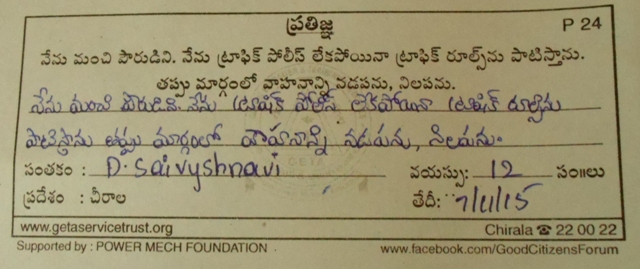 ప్రతిజ్ఞ
P 24
నేను మంచి పౌరుడిని. నేను ట్రాఫిక్ పోలీస్ లేకపోయినా ట్రాఫిక్ రూల్స్‌ను పాటిస్తాను.
తప్పు మార్గంలో వాహనాన్ని నడపను, నిలపను.
నేను మంచి పౌరుడిని. నేను ట్రాఫిక్ పోలీస్ లేకపోయినా ట్రాఫిక్ రూల్స్‌ను
పాటిస్తాను తప్పు మార్గంలో వాహనాన్ని నడపను, నిలపను.
సంతకం : D. Saivyshnavi వయస్సు: 12 సం॥లు
ప్రదేశం : చీరాల తేదీ: 7/11/15
www.getaservicetrust.org Chirala ☎ 22 00 22
Supported by : POWER MECH FOUNDATION www.facebook.com/GoodCitizensForum